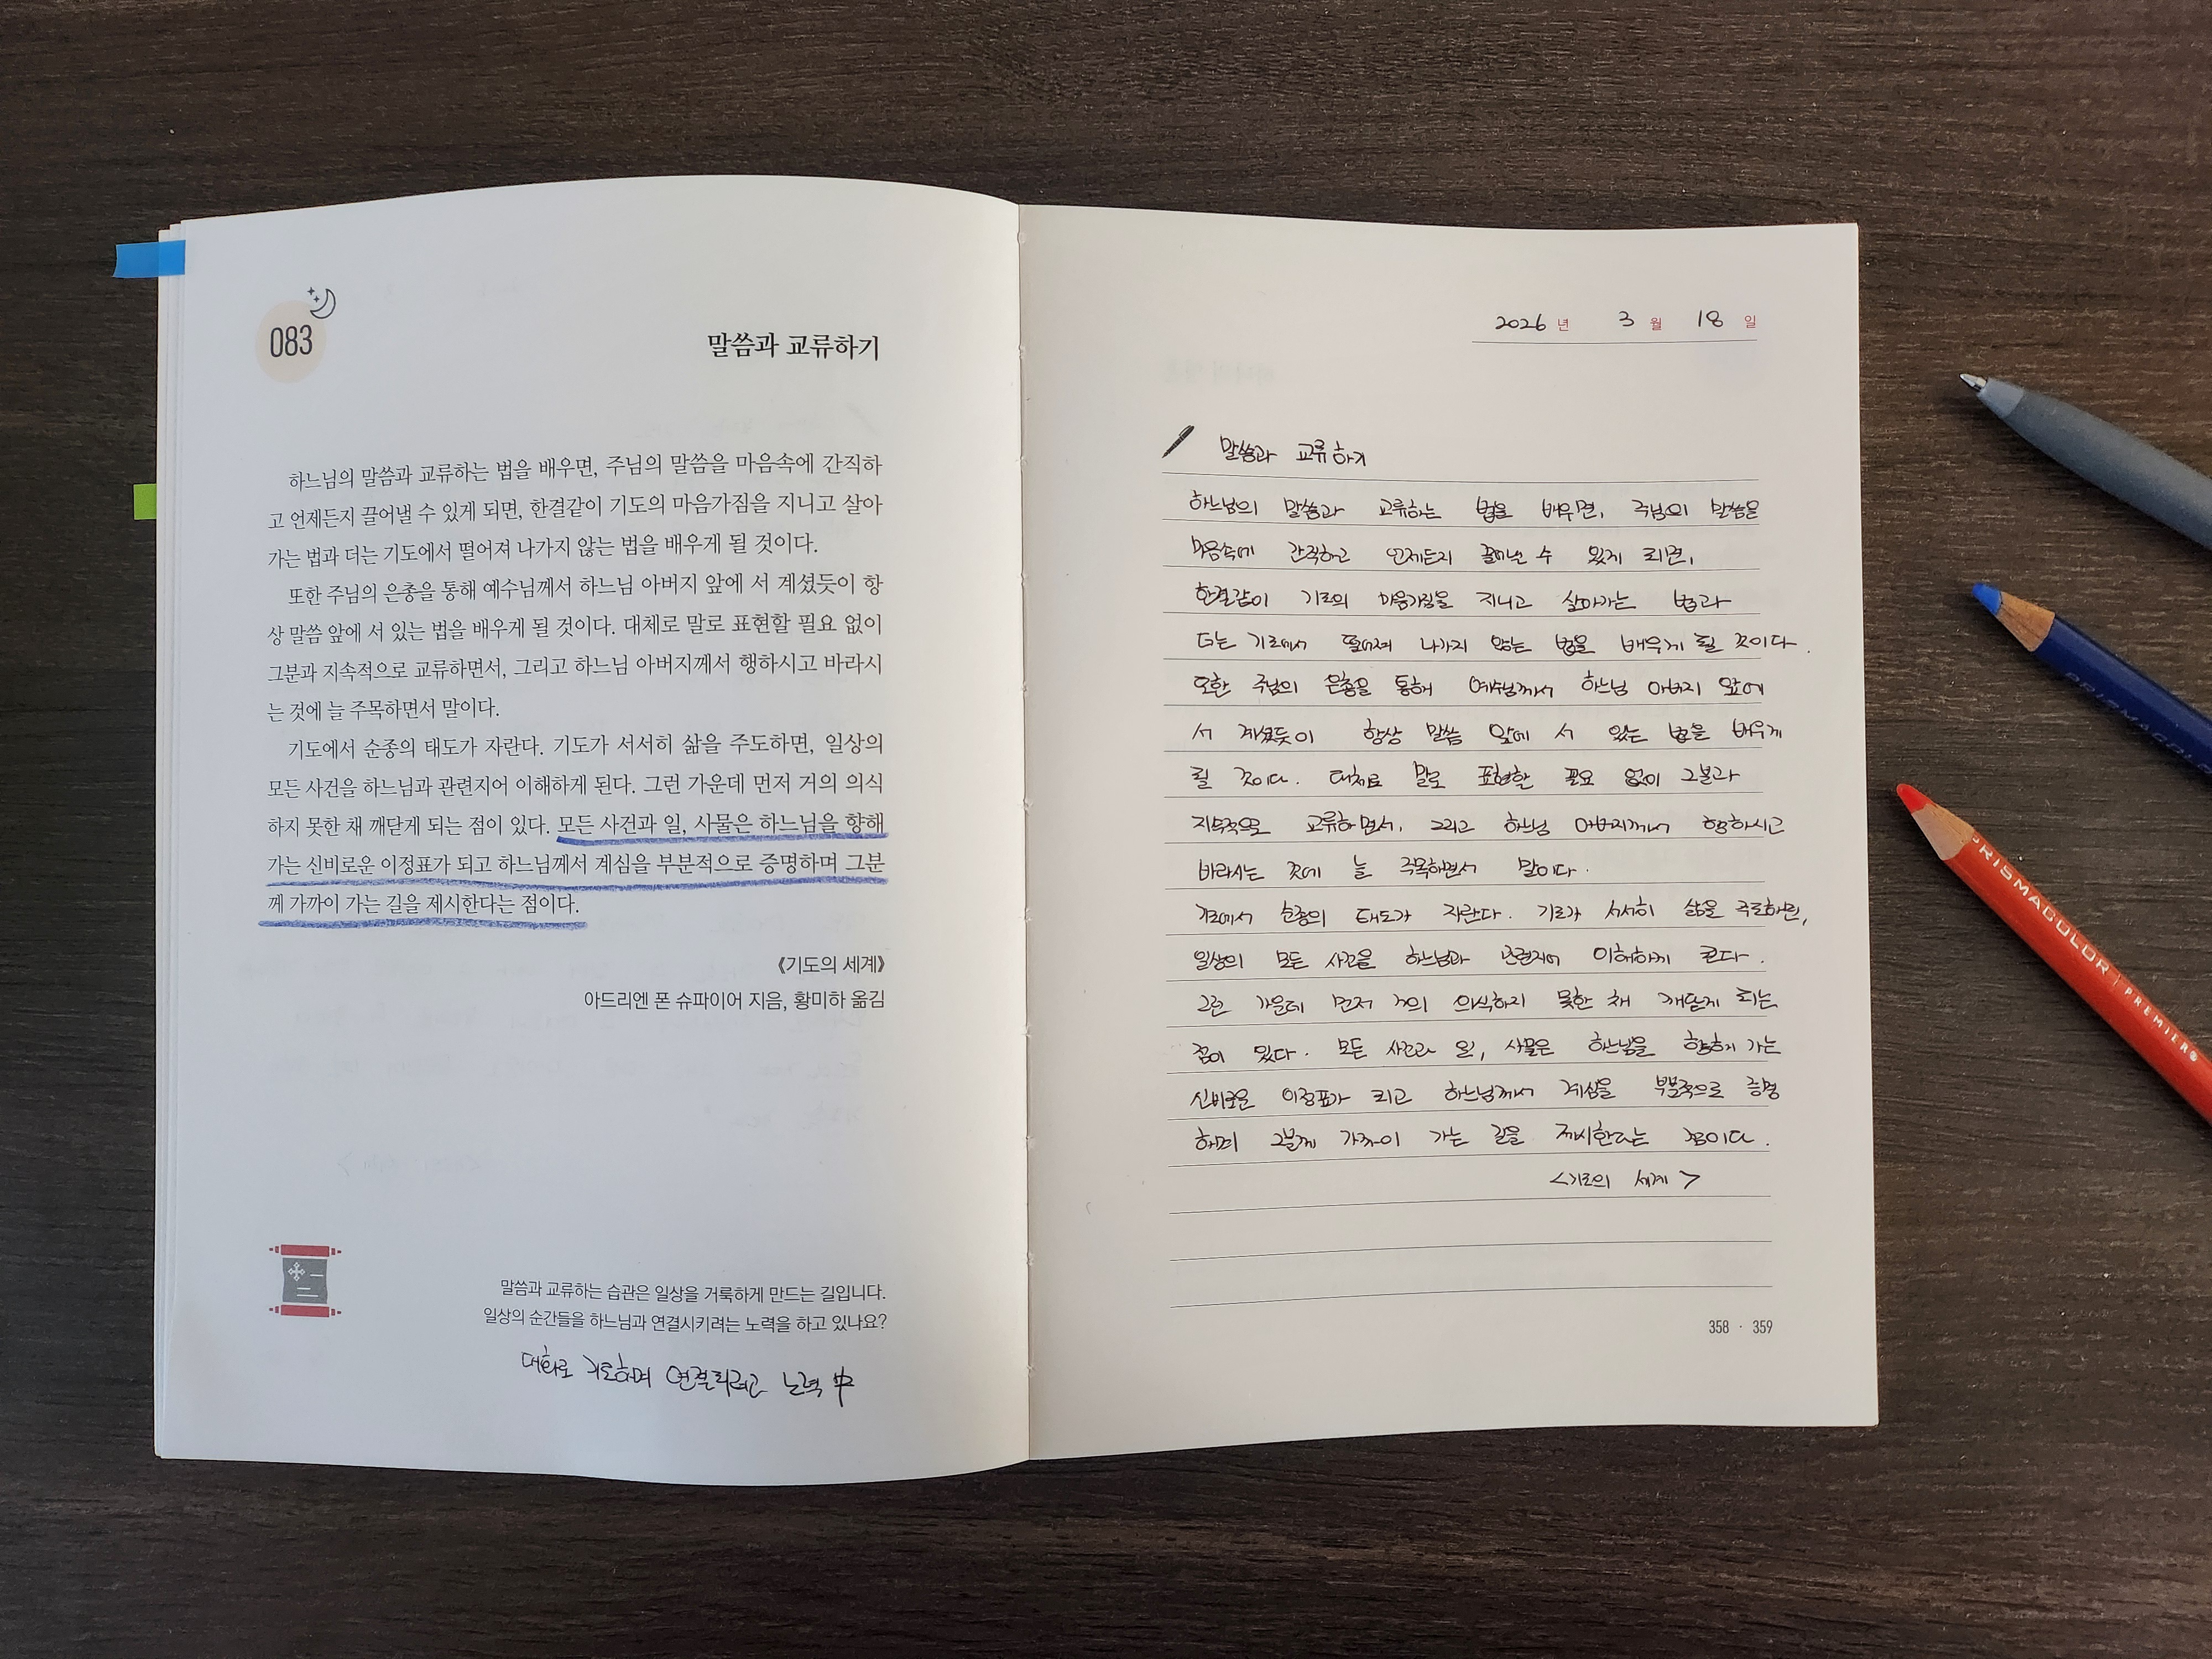 083
말씀과 교류하기
하느님의 말씀과 교류하는 법을 배우면, 주님의 말씀을 마음속에 간직하
고 언제든지 끌어낼 수 있게 되면, 한결같이 기도의 마음가짐을 지니고 살아
가는 법과 더는 기도에서 떨어져 나가지 않는 법을 배우게 될 것이다.
또한 주님의 은총을 통해 예수님께서 하느님 아버지 앞에 서 계셨듯이 항
상 말씀 앞에 서 있는 법을 배우게 될 것이다. 대체로 말로 표현할 필요 없이
그분과 지속적으로 교류하면서, 그리고 하느님 아버지께서 행하시고 바라시
는 것에 늘 주목하면서 말이다.
기도에서 순종의 태도가 자란다. 기도가 서서히 삶을 주도하면, 일상의
모든 사건을 하느님과 관련지어 이해하게 된다. 그런 가운데 먼저 거의 의식
하지 못한 채 깨닫게 되는 점이 있다. 모든 사건과 일, 사물은 하느님을 향해
가는 신비로운 이정표가 되고 하느님께서 계심을 부분적으로 증명하며 그분
께 가까이 가는 길을 제시한다는 점이다.
《기도의 세계》
아드리엔 폰 슈파이어 지음, 황미하 옮김
말씀과 교류하는 습관은 일상을 거룩하게 만드는 길입니다.
일상의 순간들을 하느님과 연결시키려는 노력을 하고 있나요?
대화로 기도하며 연결되려고 노력 中
2026년 3월 18일
말씀과 교류하기
하느님의 말씀과 교류하는 법을 배우면, 주님의 말씀을
마음속에 간직하고 언제든지 끌어낼 수 있게 되면,
한결같이 기도의 마음가짐을 지니고 살아가는 법과
더는 기도에서 떨어져 나가지 않는 법을 배우게 될 것이다.
또한 주님의 은총을 통해 예수님께서 하느님 아버지 앞에
서 계셨듯이 항상 말씀 앞에 서 있는 법을 배우게
될 것이다. 대체로 말로 표현할 필요 없이 그분과
지속적으로 교류하면서, 그리고 하느님 아버지께서 행하시고
바라시는 것에 늘 주목하면서 말이다.
기도에서 순종의 태도가 자란다. 기도가 서서히 삶을 주도하면,
일상의 모든 사건을 하느님과 관련지어 이해하게 된다.
그런 가운데 먼저 거의 의식하지 못한 채 깨닫게 되는
점이 있다. 모든 사건과 일, 사물은 하느님을 향해 가는
신비로운 이정표가 되고 하느님께서 계심을 부분적으로 증명
하며 그분께 가까이 가는 길을 제시한다는 점이다.
<기도의 세계>
358 · 359
PRISMACOLOR
PRISMACOLOR | PREMIER®